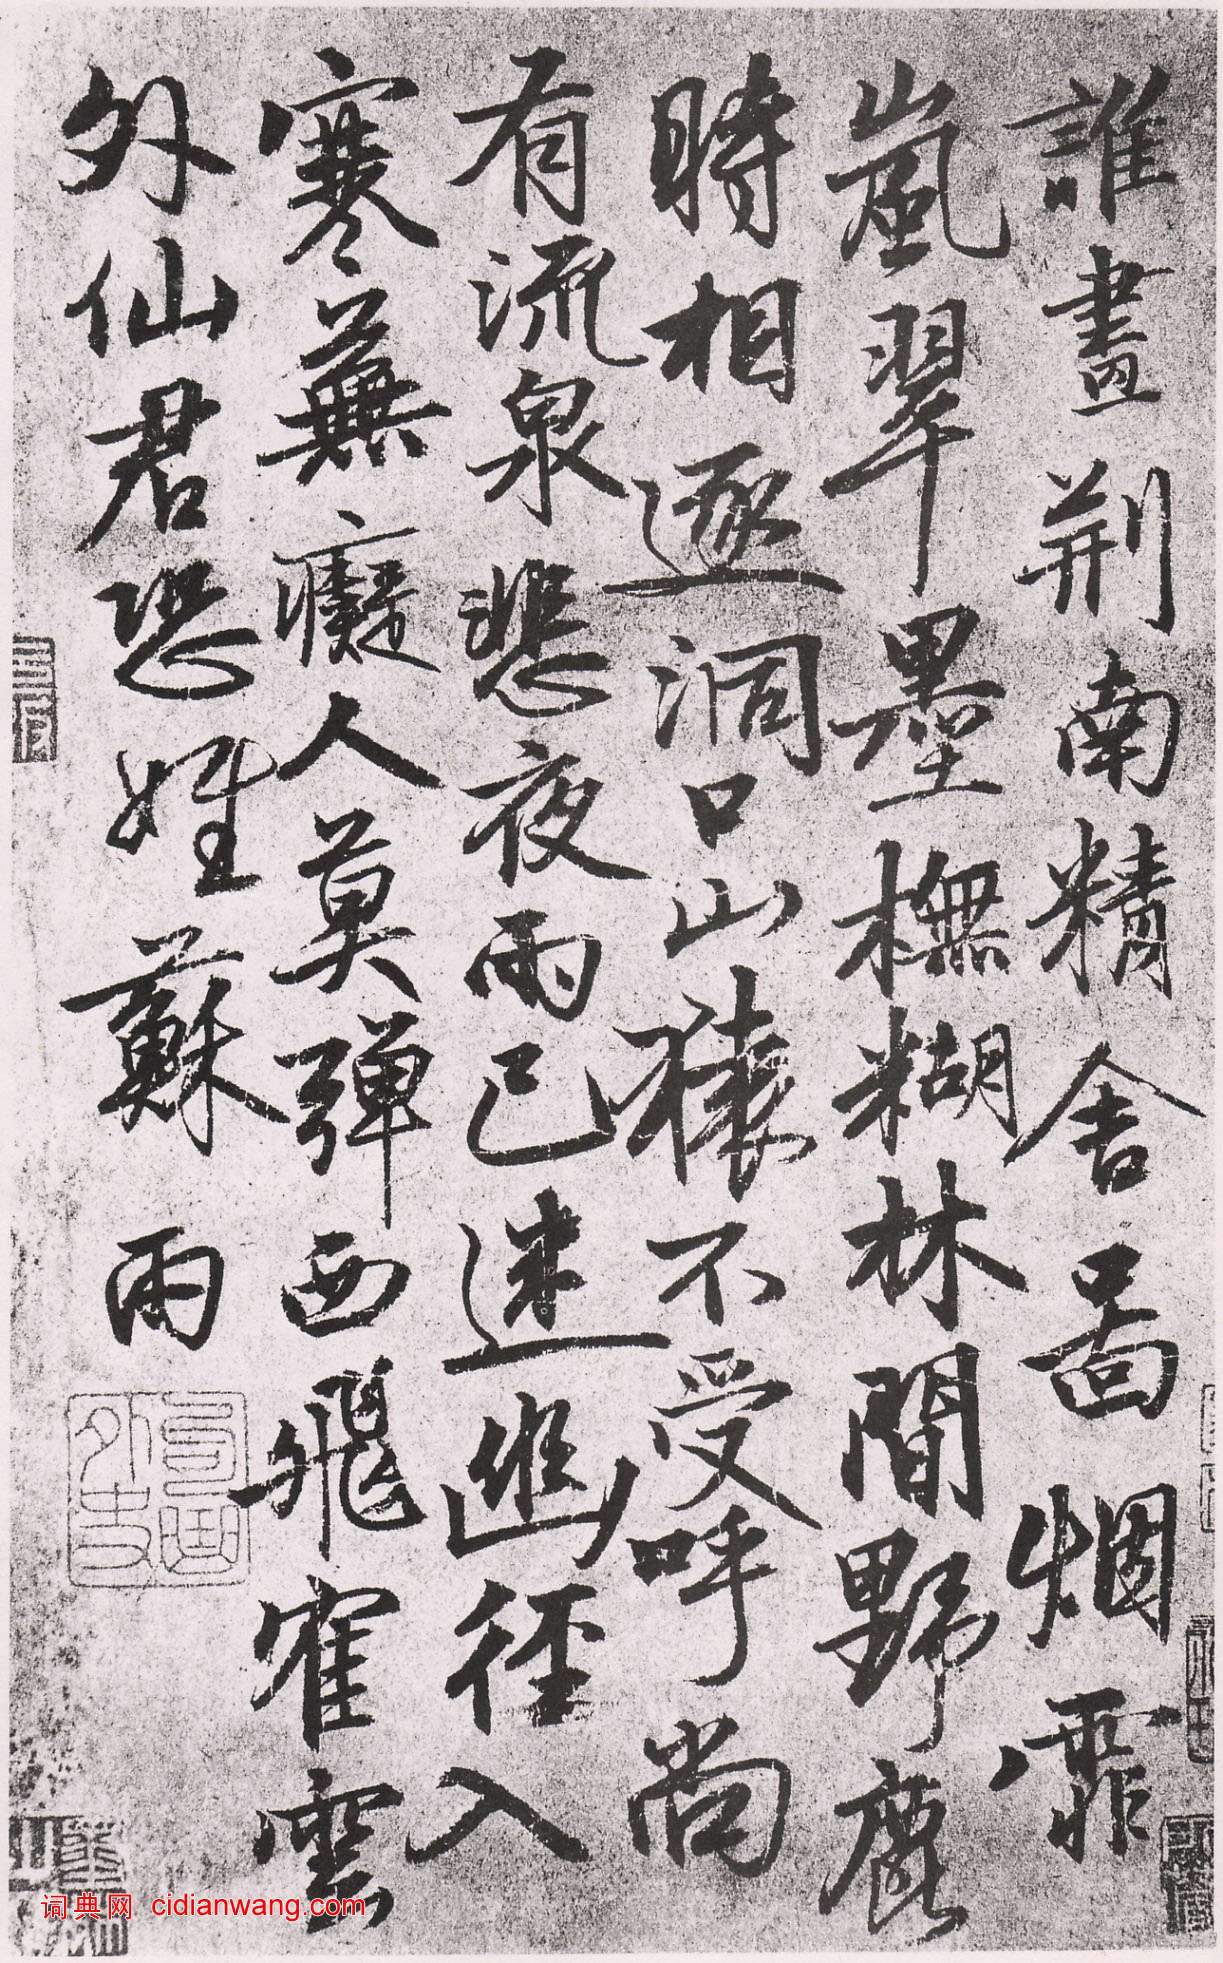 誰畫荊南精舍啚烟霏
嵐翠墨橅糊林間野鹿
時相逐洞口山猿不受呼尚
有流泉悲夜雨已迷幽徑入
寒蕪癡人莫彈西飛寉雲
外仙君恐姓蘇雨
句曲外史
词典网 cidianwang.com